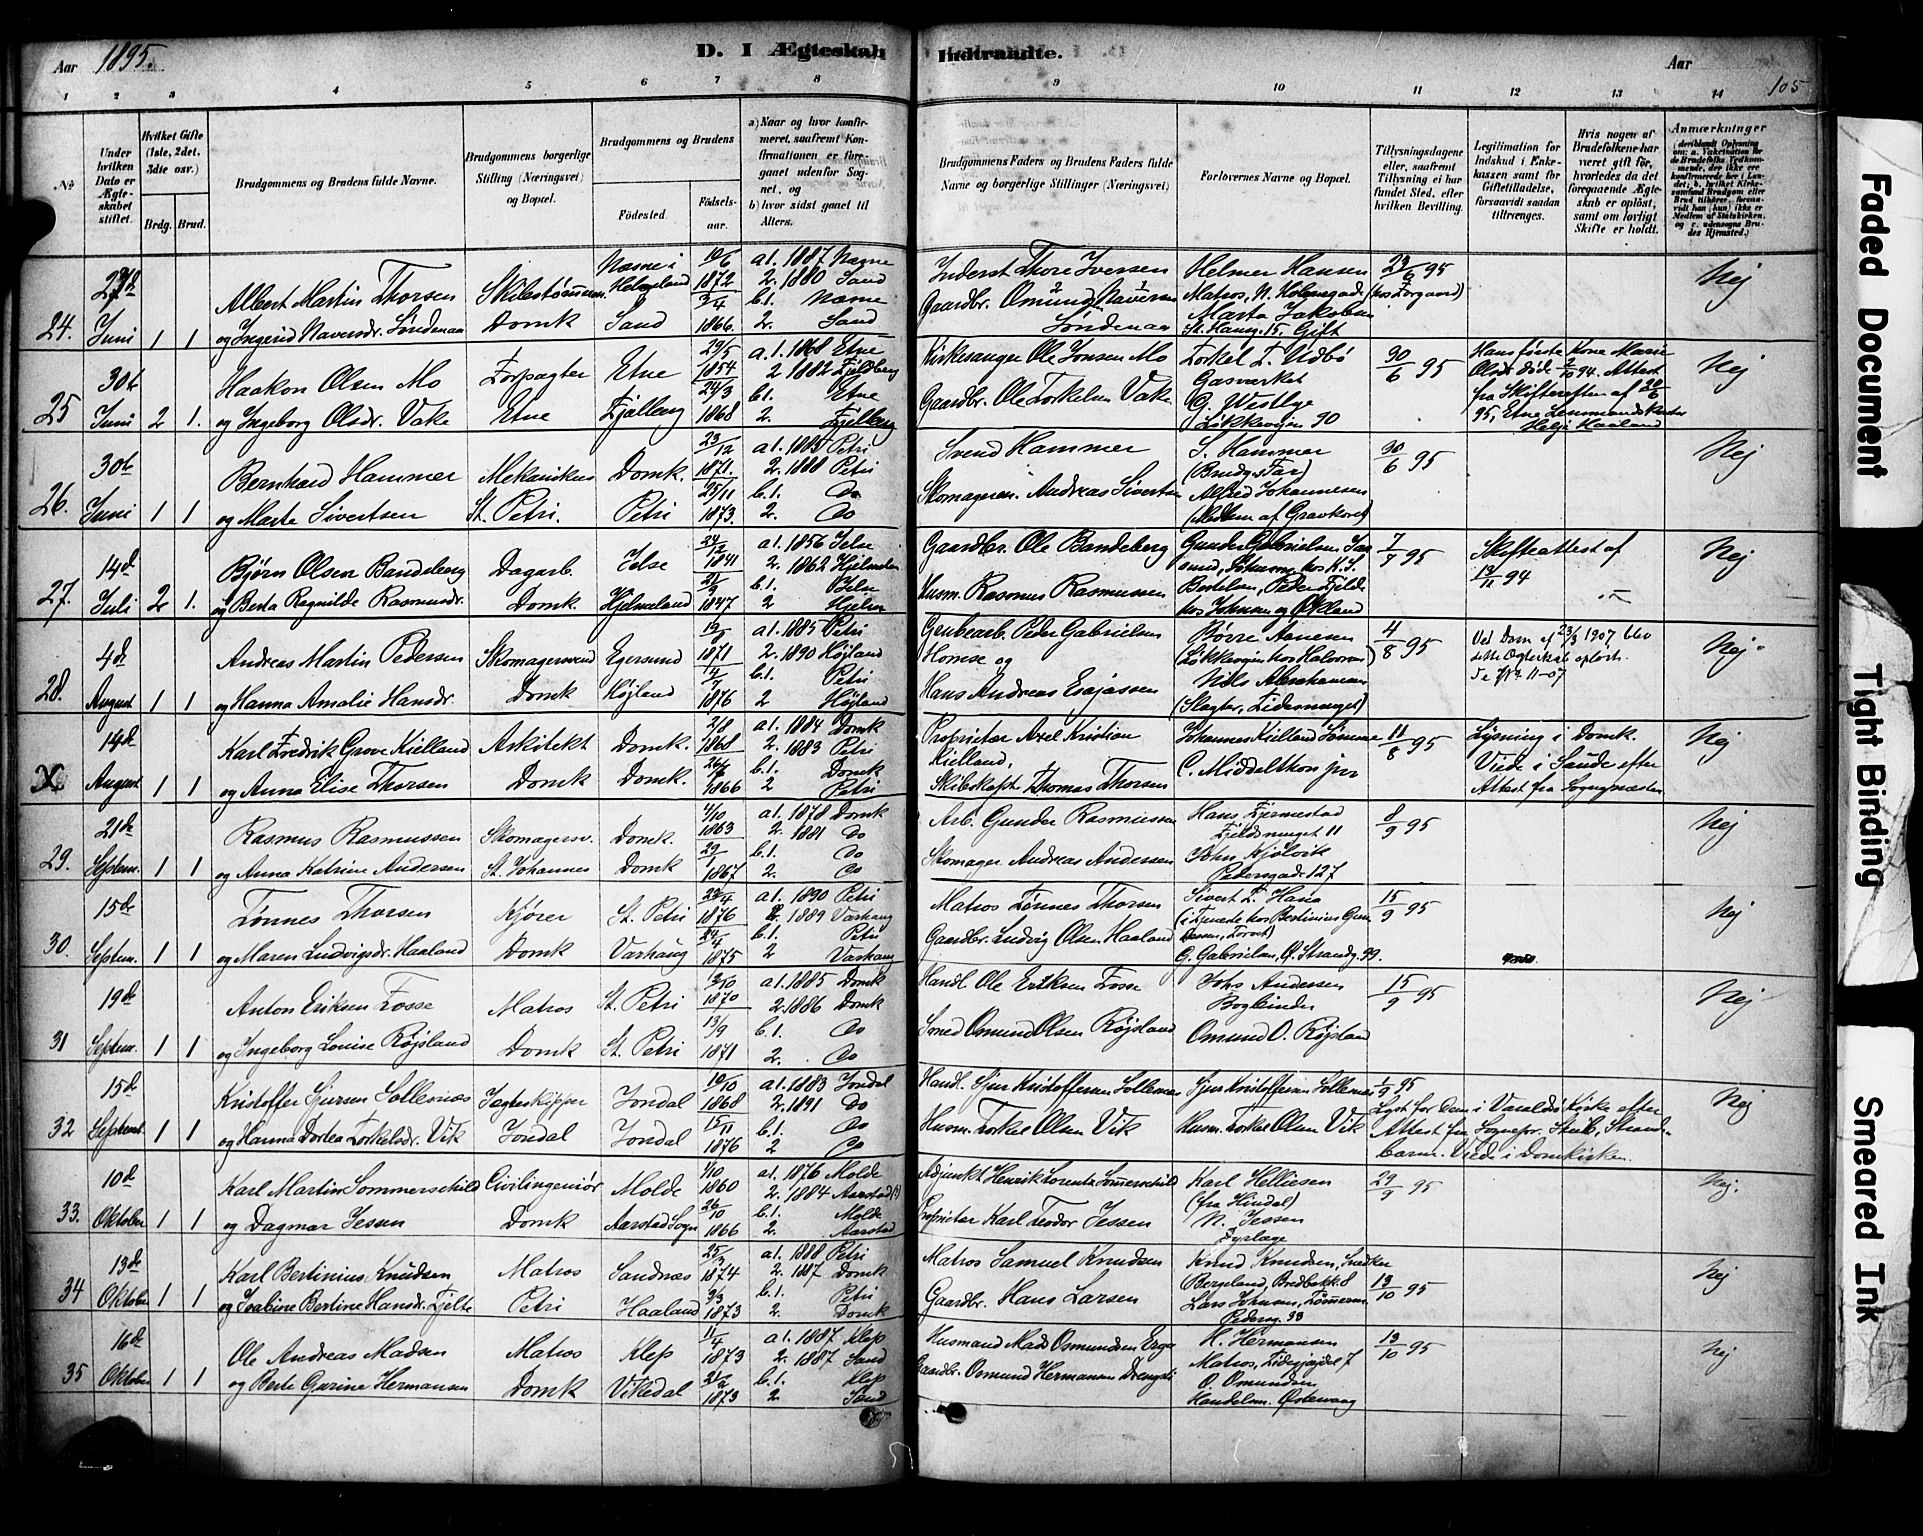 Aar 1895.
D. I Ægteskab Indtraadte.
Aar
105
1 2 3 4 5 6 7 8 9 10 11 12 13 14
No
Under hvilken Dato er Ægteskabet stiftet.
Hvilket Gifte (1ste, 2det, 3die osv.)
Brdg. Brud.
Brudgommens og Brudens fulde Navne.
Brudgommens borgerlige Stilling (Næringsvei) og Bopæl.
Brudgommens og Brudens
Fødested. Fødselsaar.
a) Naar og hvor konfirmeret, saafremt Konfirmationen er foregaaet udenfor Sognet, og
b) hvor sidst gaaet til Alters.
Brudgommens Faders og Brudens Faders fulde Navne og borgerlige Stillinger (Næringsvei)
Forlovernes Navne og Bopæl.
Tillysningsdagene eller, saafremt Tillysning ei har fundet Sted, efter hvilken Bevilling.
Legitimation for Indskud i Enkekassen samt for Giftetilladelse, forsaavidt saadan tiltrænges.
Hvis nogen af Brudefolkene har været gift før, hvorledes da det foregaaende Ægteskab er opløst, samt om lovligt Skifte er holdt.
Anmærkninger
24. Juni 1 1
Albert Martin Thorsen
og Ingerid Naversdr. Søndenaa
Domk Sand
1872 1866.
a1. 1887 Nærne
2. 1880 Sand
b.1. Nærne
2. Sand
Inderst Thore Iversen
Gaardbr. Omund Naversen
Søndenaa
Helmer Hansen
Marta Jakobsen
St. Hansg. 15. Gift
23/6 95
Nej
25 30te Juni 2 1.
Haakon Olsen Mo
og Ingeborg Olsdr. Vake
Forpagter Etne
Etne Fjelberg
29/5 1854
24/3 1868
a.1. 1868 Etne
2 1882 Fjeldberg
b1. Etne
2. Fjelberg
Kirkesanger Ole Jonsen Mo
Gaardbr. Ole Torkelsen Vake
Torkel T. Vidbø
Gasverket
G. Westbye
Løkkevejen 90
30/6 95
Hans første Kone Marie
Olsdr. døde 2/10 94. Attest
fra Skifteretten af 20/6
95, Etne Lensmandskontor
Helje Haaland
Nej
26. 30te Juni 1 1
Bernhard Hammer
og Marte Sivertsen
Mekanikus Domk.
St. Petri. Petri
23/12 1871.
25/11 1873.
a1. 1885 Petri
2. 1888 Petri
b.1. Do
2. Do
Svend Hammer
Skomagerm. Andreas Sivertsen
S. Hammer
(Brudg.s Far)
Alfred Johannesen
(Medlem af Gravkoret)
30/6 95
Nej
27. 14de Juli 2 1.
Bjørn Olsen Bandeberg
og Berta Ragnilde Rasmusdr.
Dagarb. Jelse
Domk. Hjelmeland
24/12 1841
1847
a1. 1856 Jelse
2. 1862 Hjelmeland
b.1. Jelse
2 Hjelm
Gaardbr. Ole Bandeberg
Husm. Rasmus Rasmussen
7/7 95
Skifteattest af
13/11 94
Nej
28. 4de August 1 1
Andreas Martin Pedersen
og Hanna Amalie Hansdr.
Skomagersvend Egersund
Domk Højland
1871
1876
a1. 1885 Petri
2. 1890 Højland
b1. Petri
2 Højland
Grubearb. Peder Gabrielsen
Homse og
Hans Andreas Esajassen
Børre Aanesen
(Løkkevejen hos Halvorsen)
Niels Abrahamsen
4/8 95
Ved Dom af 23/3 1907 blev
dette Ægteskab opløst.
Nej.
X 14de August 1 1
Karl Fredrik Grove Kielland
og Anna Elise Thorsen
Arkitekt Domk.
Domk Domk.
2/8 1868
1866
a1. 1884 Domk
2. 1883 Petri
b.1. Domk
2 Petri
Proprietær Axel Kristian
Kielland,
Skibskapt. Thomas Thorsen
Johannes Kielland Sømme
C. Middelthon jnr
11/8 95
Lysning i Domk.
Viede i Saude efter
Attest fra Sognepræsten
Nej
29. 21de Septem. 1 1
Rasmus Rasmussen
og Anna Katrine Andersen
Skomagersv. Domk.
St. Johannes Domk
4/10 1863
29/1 1867
a1. 1878 Domk
2. 1881 Do
b.1. Do
2. Do
Arb. Gunder Rasmussen
Skomager Andreas Andersen
Hans Fjermestad
John Kjølvik
Pedersgade 127
8/9 95
Nej
30. 15de Septem. 1 1
Tønnes Thorsen
og Maren Ludvigsdr. Haaland
Kjører St. Petri
Domk Varhaug
1876
24/4 1875
a1. 1890 Petri
2. 1889 Varhaug
b.1. Petri
2 Varhaug
Matros Tønnes Thorsen
Gaardbr. Ludvig Olsen Haaland
G. Gabrielsen, Ø. Strandg. 99.
15/9 95
Nej
31 19de Septem. 1 1
Anton Eriksen Fosse
og Ingeborg Louise Røjsland
Matros St. Petri
Domk St. Petri
1870
13/9 1871
a1. 1885 Domk
2. 1886 Domk
b.1. Do
2. Do
Handl Ole Eriksen Fosse
Smed Omund Olsen Røjsland
Johs Andersen
Bogbinder
Omund O. Røjsland
15/9 95
Nej
32 15de Septembr. 1 1
Kristoffer Sjursen Sollesnæs
og Hanna Dortea Torkelsdr. Vik
Jægteskipper Jondal
Jondal Jondal
10/10 1868
15/11 1876
a1. 1883 Jondal
2. 1891 Do
b.1. Do
2 Do
Handl. Sjur Kristoffersen Sollesnæs
Husm. Torkel Olsen Vik
Sjur Kristoffersen Sollesnæs
Husm. Torkel Olsen Vik
1/9 95
Lyst for Dem i Varaldsø Kirke efter
Attest fra Sognepr. Skub, Strandebarm. Viede i Domkirken.
Nej
33. 10de Oktober 1 1
Karl Martin Sommerschild
og Dagmar Jessen
Civilingeniør Molde
Domk Aarstad Sogn
1/10 1860
26/10 1866
a1. 1876 Molde
2. 1884 Aarstad(?)
b.1. Molde
2. Aarstad
Adjunkt Henrik Lorentz Sommerschild
Proprietær Karl Teodor Jessen
Karl Helliesen
(fra Hindal)
N. Jessen
Dyrlæge
29/9 95
Nej.
34 13de Oktober 1 1
Karl Bertinius Knudsen
og Joabine Bertine Hansdr. Tjelte
Matros Sandnæs
Petri Haaland
25/3 1874
1873
a1. 1888 Petri
2. 1887 Domk
b.1. Petri
2. Domk
Matros Samuel Knudsen
Gaardbr. Hans Larsen
Knud Knudsen, Snedker
Bergeland, Bredbakk. 8
Lars Johnsen, Tømmerm.
Pedersg. 33
13/10 95
Nej
35 16de Oktober 1 1
Ole Andreas Madsen
og Berte Gurine Hermansen
Matros Klep
Domk Vikedal
11/4 1873
21/2 1873
a1. 1887 Klep
2. 1887 Sand
b.1. Klep
2. Sand
Husmand Mads Osmundsen Erga
Gaardbr. Osmund Hermansen
H. Hermansen
O. Omundsen
Handelsm. Østervaag
13/10 95
Nej
Faded Document
Tight Binding
Smeared Ink